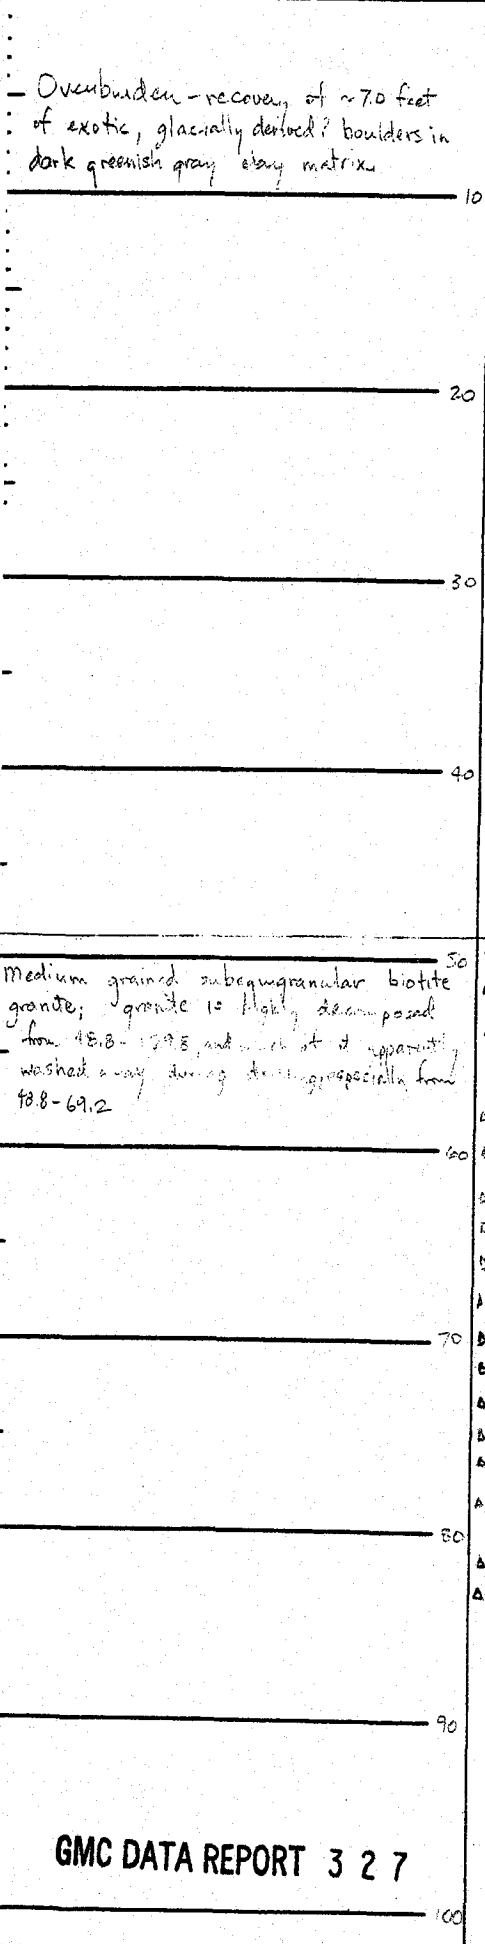 Overburden - recovery of ~7.0 feet
of exotic, glacially derived? boulders in
dark greenish gray clay matrix.
10
20
30
40
50
Medium grained subequigranular biotite
granite; granite is highly decomposed
from 48.8 - and much of it apparently
washed away during drilling, especially from
48.8 - 69.2
60
70
80
90
GMC DATA REPORT 3 2 7
100